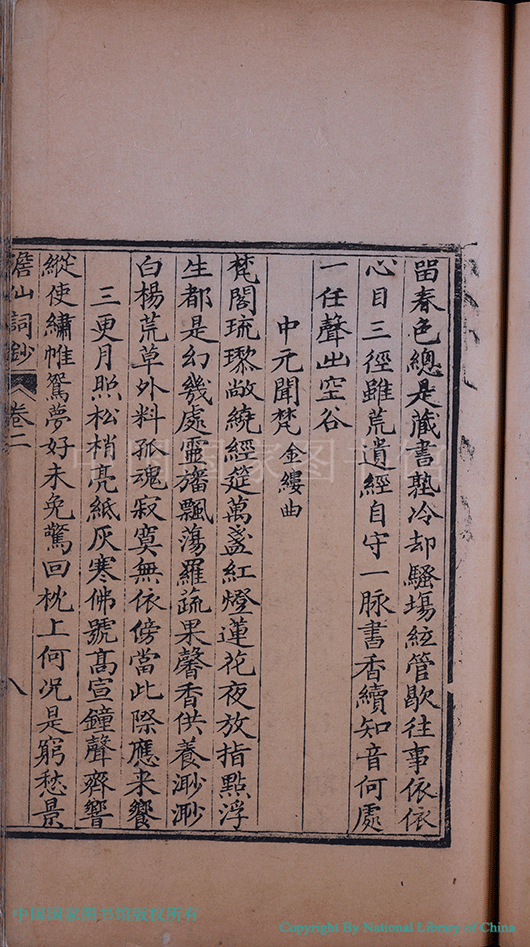 留春色總是藏書塾冷却騷塲絃管歇往事依依
心目三徑雖荒遺經自守一脉書香續知音何處
一任聲出空谷
中元聞梵 金縷曲
梵閣琉瓈敞繞經筵萬盞紅燈蓮花夜放指點浮
生都是幻幾處靈旛飄蕩羅蔬果馨香供養渺渺
白楊荒草外料孤魂寂寞無依傍當此際應来饗
三更月照松梢亮紙灰寒佛號髙宣鐘聲齊響
縱使繡帷鴛夢好未免驚回枕上何况是窮愁景
詞鈔 卷二 八
中国国家图书馆
中国国家图书馆版权所有
Copyright By National Library of China